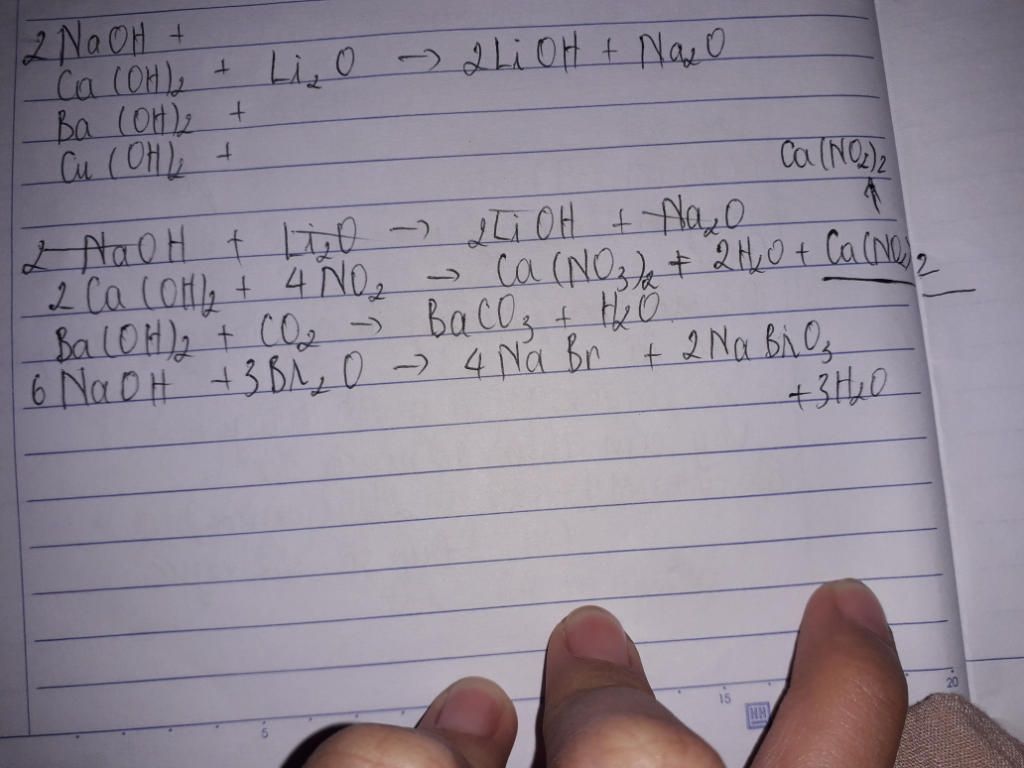 2NaOH +
Ca(OH)₂ + Li₂O → 2LiOH + Na₂O
Ba(OH)₂ +
Cu(OH)₂ +
Ca(NO₂)₂
2NaOH + Li₂O → 2LiOH + Na₂O
2Ca(OH)₂ + 4NO₂ → Ca(NO₃)₂ + 2H₂O + Ca(NO₂)₂
Ba(OH)₂ + CO₂ → BaCO₃ + H₂O
6NaOH + 3Br₂O → 4NaBr + 2NaBrO₃
+3H₂O
5 15 20
HH